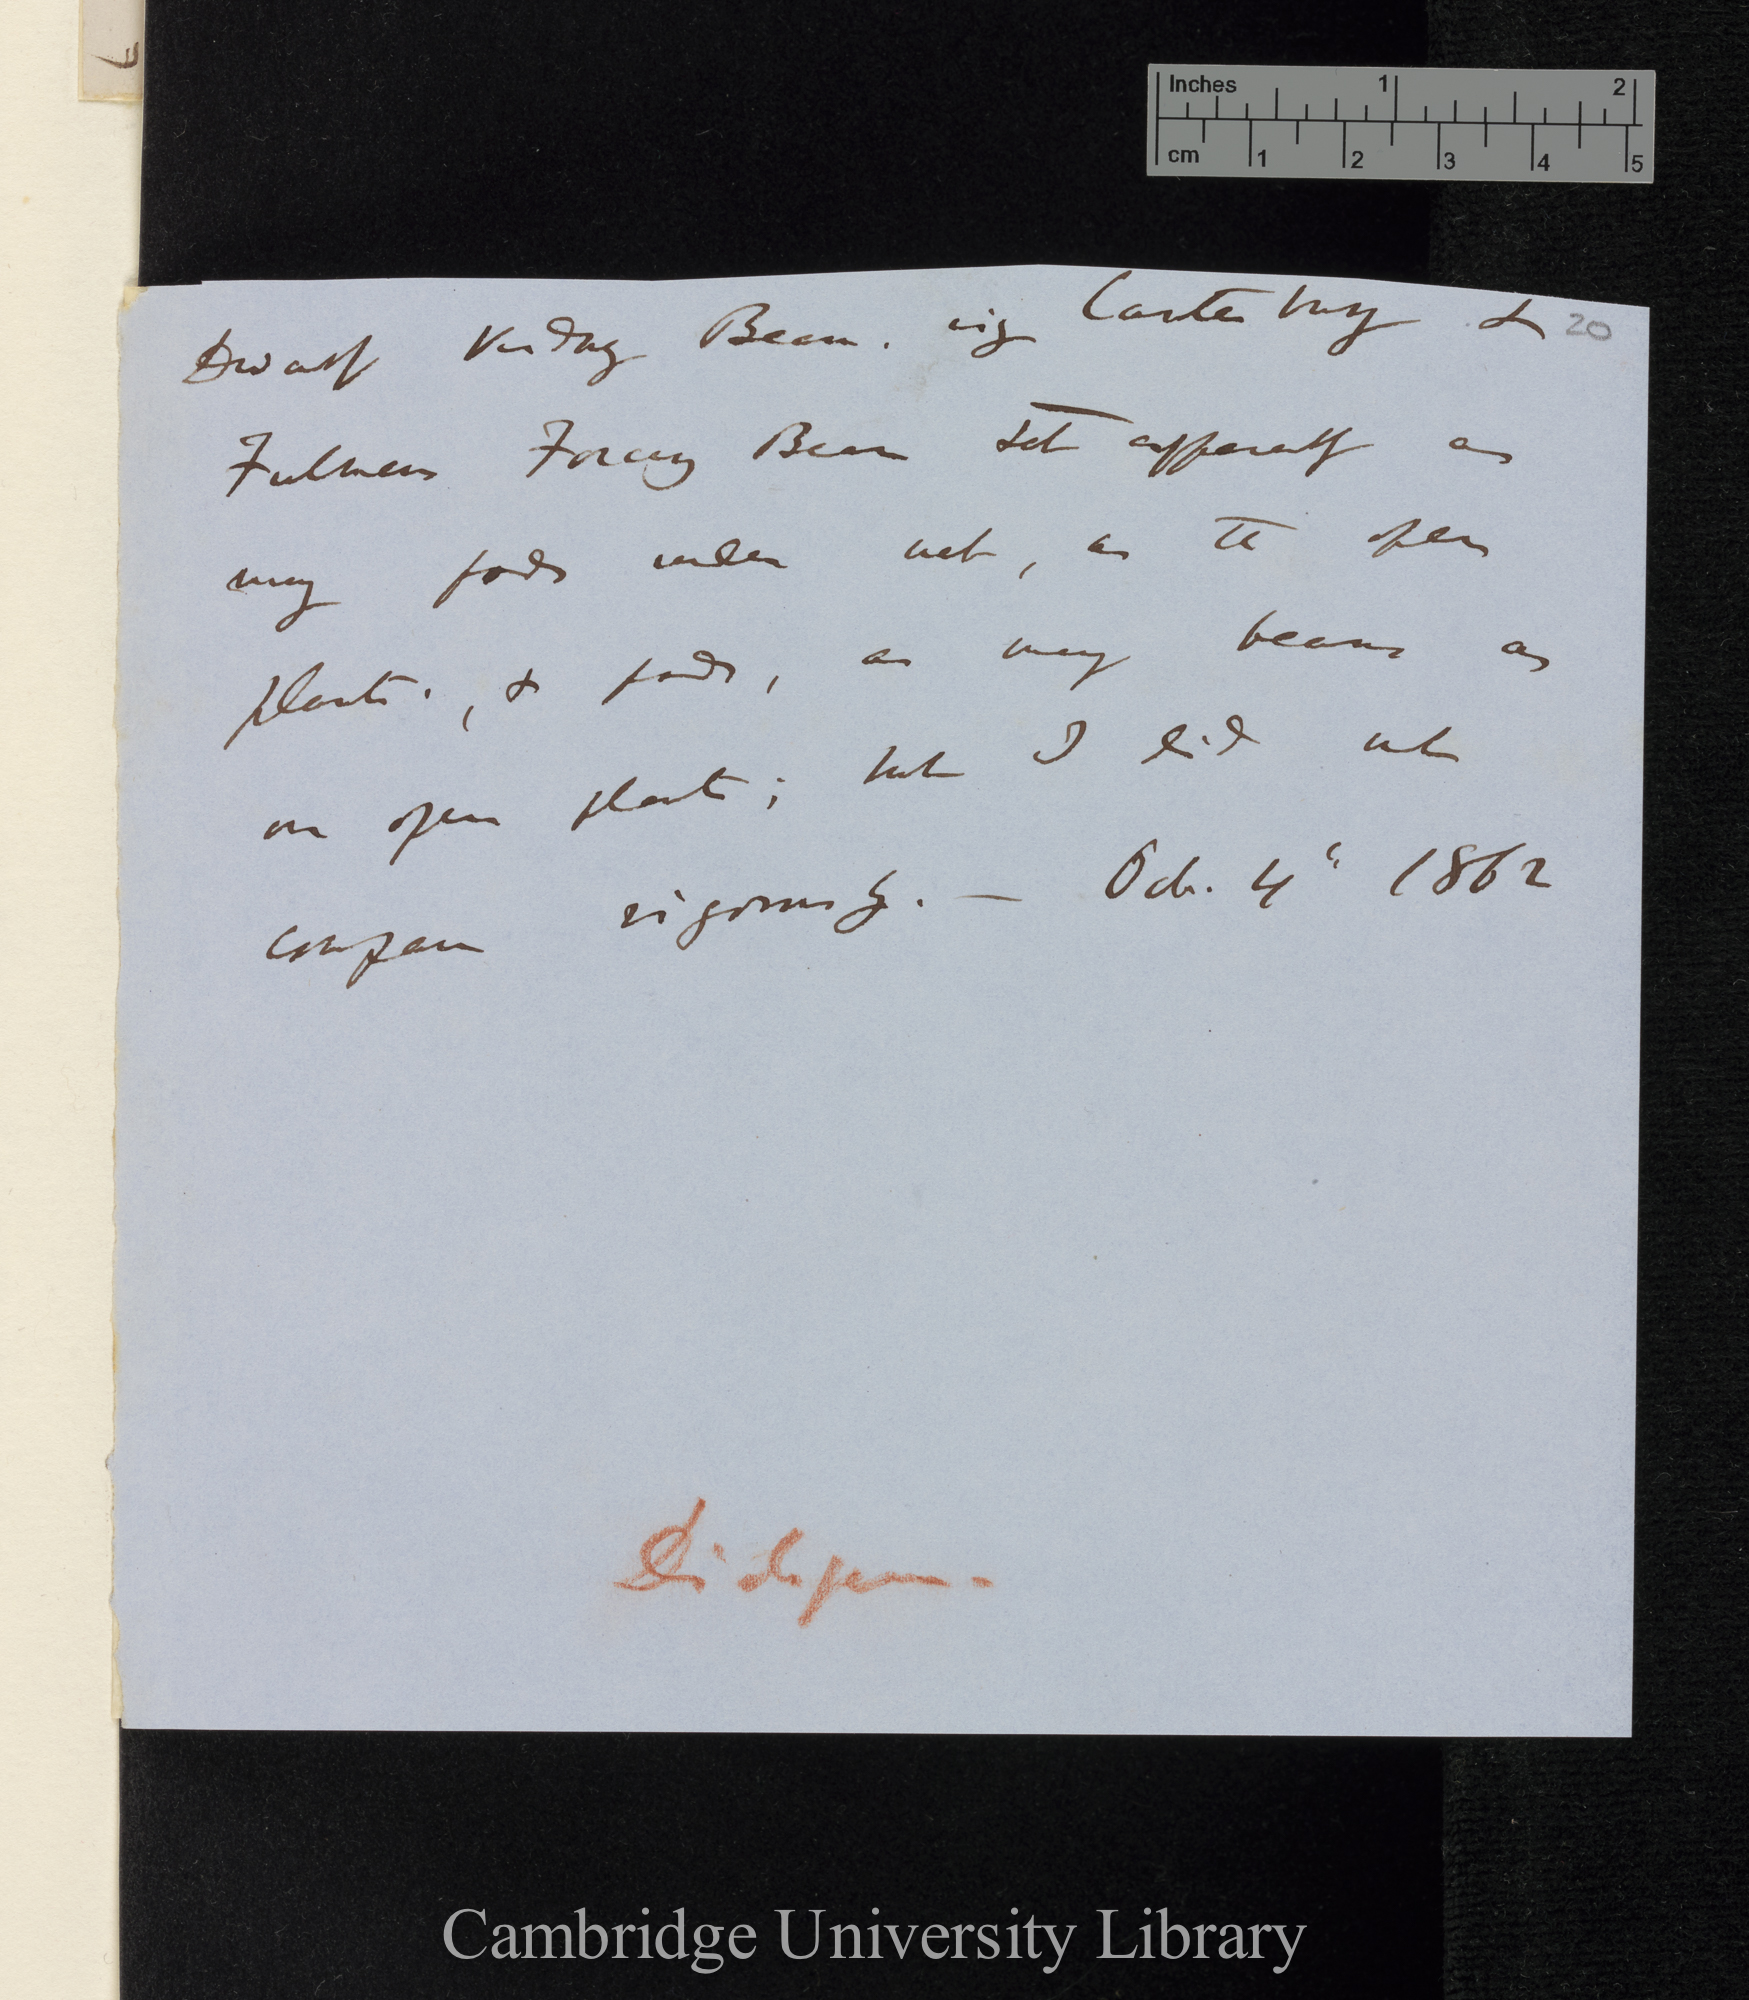 Inches 1 2
cm 1 2 3 4 5
20
Dwarf Kidney Bean. viz Canterbury &
Fulmers Forcing Bean set apparently as
many pods under net, as the open
plants., & pods, as many beans as
on open plants; but I did not
compare rigorously. — Oct. 4th 1862
Dichogam.
Cambridge University Library